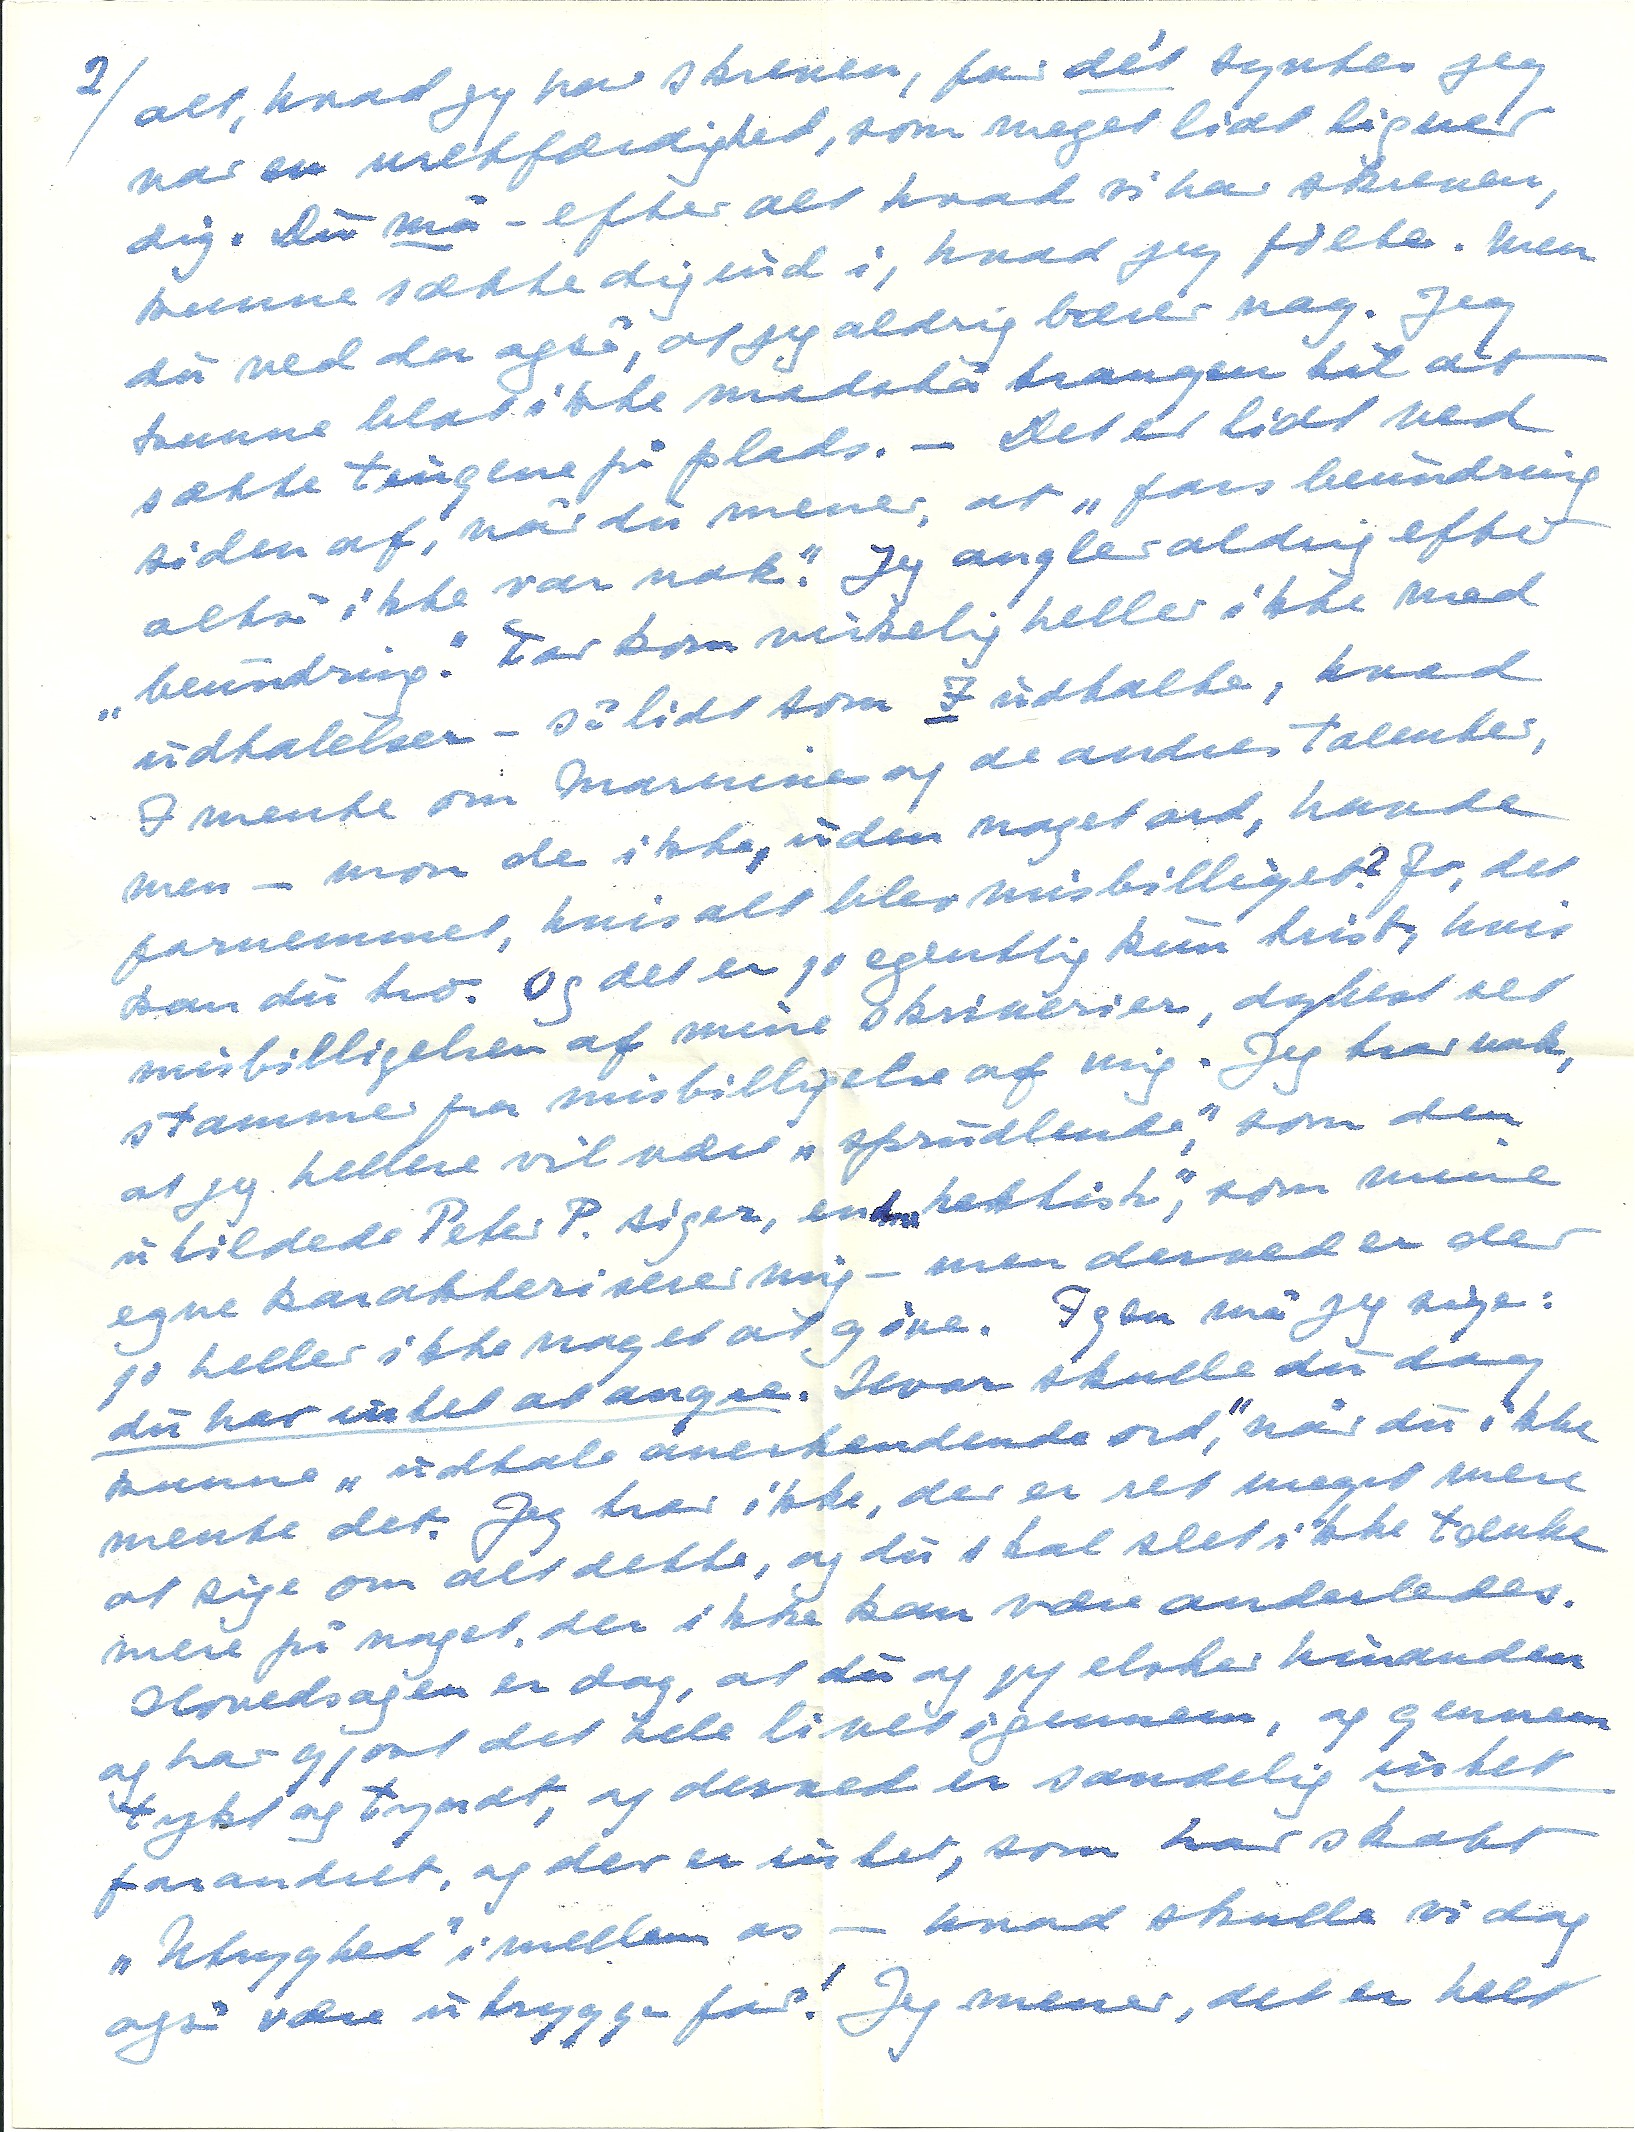 2/ alt, hvad jeg har skrevet, for dét syntes jeg
var en uretfærdighed, som meget lidt ligner
dig. Du må - efter alt hvad vi har skrevet,
kunne sætte dig ind i, hvad jeg følte. Men
du ved da også, at jeg aldrig bærer nag. Jeg
kunne blot ikke modstå trangen til at
sætte tingene på plads. - Det er lidt ved
siden af, når du mener, at „fars beundring
altså ikke var nok". Jeg angler aldrig efter
„beundring". Far kom virkelig heller ikke med
udtalelser - så lidt som I udtalte, hvad
I mente om Marinies og de andres talenter,
men - mon de ikke, uden noget ord, havde
fornemmet, hvis alt blev misbilliget? Jo, det
kan du tro. Og det er jo egentlig kun trist, hvis
misbilligelsen af mine skriverier, dybest set
stammer fra misbilligelse af mig. Jeg tror nok,
at jeg hellere vil være „sprudlende", som den
uhildede Peter P. siger, end „hektisk", som mine
egne karakteriserer mig - men derved er der
jo heller ikke noget at gøre. Igen må jeg sige:
du har intet at angre. Hvor skulle du dog
kunne „udtale anerkendende ord", når du ikke
mente det. Jeg tror ikke, der er ret meget mere
at sige om alt dette, og du skal slet ikke tænke
mere på noget, der ikke kan være anderledes.
Hovedsagen er dog, at du og jeg elsker hinanden
og har gjort det hele livet igennem, og gennem
tykt og tyndt, og derved er sandelig intet
forandret, og der er intet, som har skabt
„Utryghed" imellem os - hvad skulle vi dog
også være utrygge for! Jeg mener, det er helt